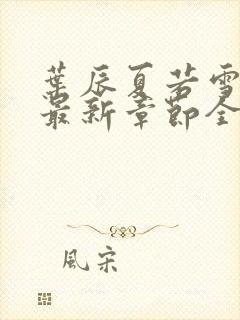 葉辰夏若雪
最新章節全
風宋